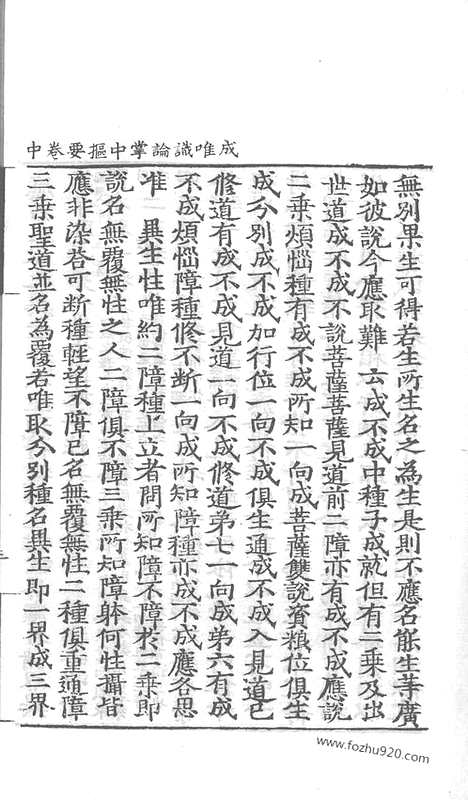 成唯識論掌中摳要卷中
無別果生可得若生所生名之為生是則不應名能生等廣
如彼說今應取難 六成不成中種子成就但有二乘及出
世道成不成不說菩薩菩薩見道前二障亦有成不成應說
二乘煩惱種有成不成所知一向成菩薩雙說資粮位俱生
成分別成不成加行位一向不成俱生通成不成入見道已
修道有成不成見道一向不成修道第七一向成第六有成
不成煩惱障種修不斷一向成所知障種亦成不成應名思
准 異生性唯約二障種上立者問所知障不障於二乘即
說名無覆無性之人二障俱不障三乘所知障躰何性攝皆
應非染荅可断種輕望不障已名無覆無性二種俱重通障
三乘聖道並名為覆若唯取分別種名異生即一界成三界
www.fozhu920.com